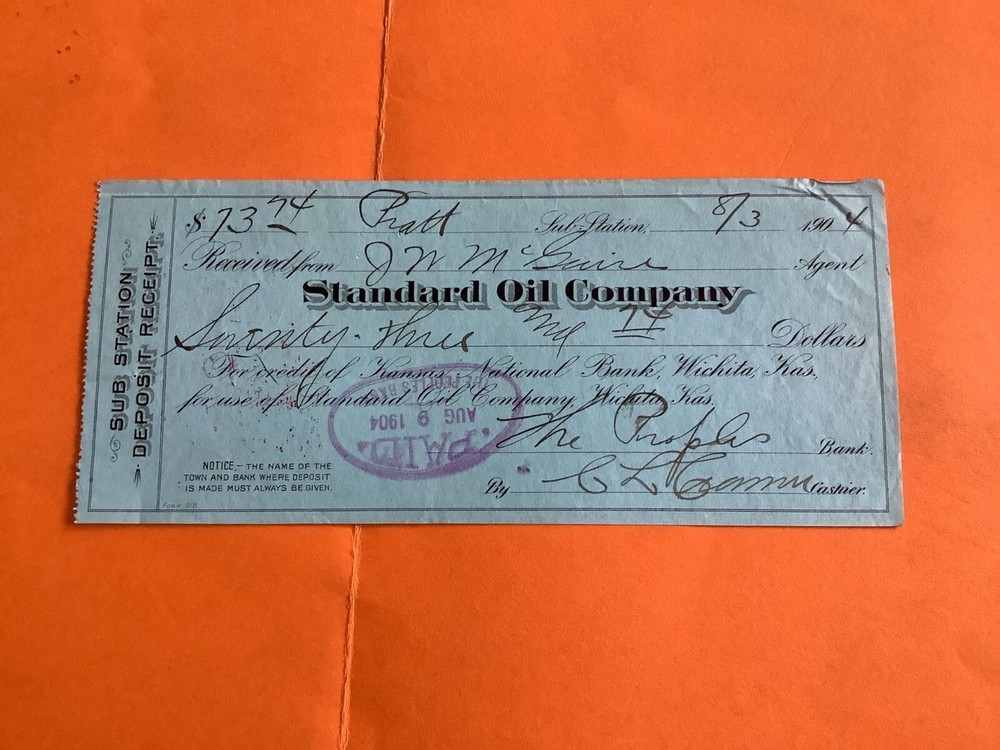 SUB STATION
DEPOSIT RECEIPT.
$ 73 74 Pratt Sub-Station, 8/3 1904
Received from J W McGuire Agent
Standard Oil Company
Seventy-three and 74 Dollars
For credit of Kansas National Bank, Wichita, Kas.,
for use of Standard Oil Company, Wichita, Kas.
THE PEOPLES BANK
AUG 9 1904
PAID
The Peoples Bank.
NOTICE,— THE NAME OF THE
TOWN AND BANK WHERE DEPOSIT
IS MADE MUST ALWAYS BE GIVEN.
By C L Cashier.
FORM